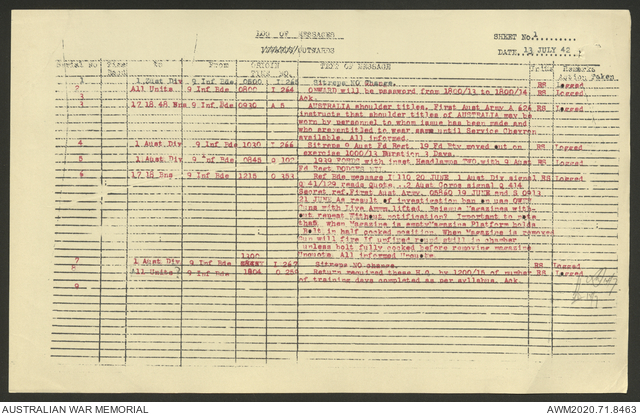 LOG OF MESSAGES
SHEET No. 1
OUTWARDS
DATE. 13 JULY 42
Serial No to From ORIGIN TEXT OF MESSAGE Remarks
TIME NO. Action Taken
1 1 Aust Div 9 Inf Bde 0500 I 263 Sitreps NO Change. RS Logged
2 All Units 9 Inf Bde 0800 I 264 ONWARD will be password from 1800/13 to 1800/14 RS Logged
Ack. RS Logged
3 17.18.48. Bns 9 Inf Bde 0930 A 5 AUSTRALIA shoulder titles. First Aust Army A 624 RS Logged
instructs that shoulder titles of AUSTRALIA may be
worn by personnel to whom issue has been made and
who are entitled to wear same until Service Chevron
available. All informed
4 1 Aust Div 9 Inf Bde 1030 I 266 Sitreps 9 Aust Fd Regt. 19 Fd Bty moved out on RS Logged
exercise 1000/13 Duration 3 Days.
5 1 Aust Div 9 Inf Bde 0845 O 102 1939 with inset Headlamps TWO, with 9 Aust RS Logged
Fd Regt
6 17.18 Bns 9 Inf Bde 1215 O 353 Ref Bde message I 110 20 JUNE 1 Aust Div signal RS Logged
Q 41/129 reads Quote ..2 Aust Corps signal Q 414
Secret ref. First Aust Army 05860 19 JUNE and S 0913
21 JUNE As result of investigation ban on use OWEN
Guns with Live Ammn lifted. Reissue Magazines with-
out repeat Without notification? Important to note
that when Magazine is empty Magazine Platform holds
Bolt in half cocked position. When Magazine is removed
Gun will fire if unfired round still in chamber
unless bolt fully cocked before removing magazine
Unquote. All informed
1300
7 1 Aust Div 9 Inf Bde I 267 Sitreps NO change. RS Logged
8 All Units? 9 Inf Bde 1804 O 256 Return required these H.Q. by 1200/15 of number RS Logged
of training days completed as per syllabus. Ack.
9
AUSTRALIAN WAR MEMORIAL
AWM2020.71.8463